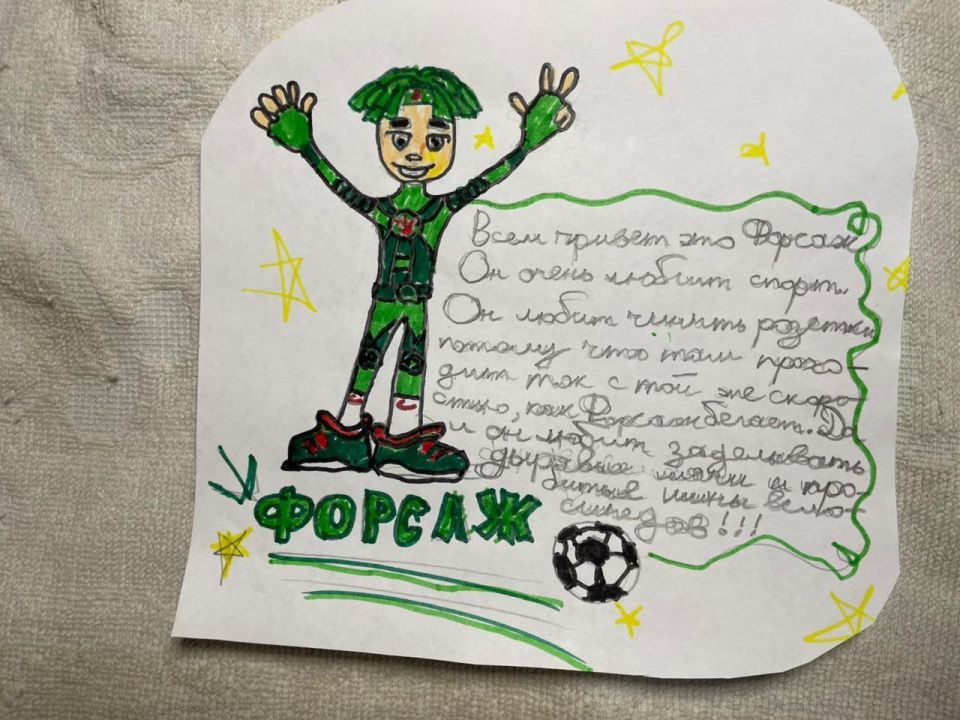 Всем привет это Форсаж
Он очень любит спорт.
Он любит чинить розетки
потому что там прохо-
дит ток с той же скоро-
стью, как Форсаж бегает. Да
и он любит заделывать
дырявые мячи и про-
битые шины вело-
сипедов!!!
ФОРСАЖ